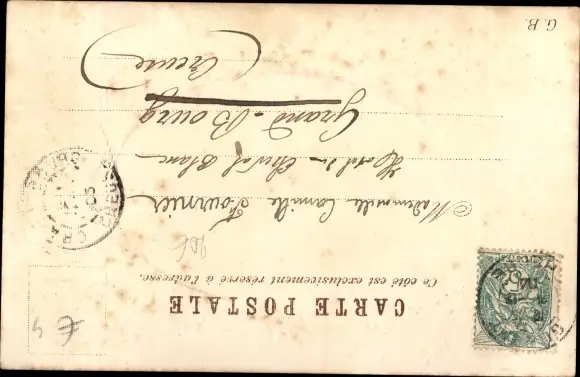 CARTE POSTALE
Ce côté est exclusivement réservé à l'adresse.
Mademoiselle Camille Fournier
Hôtel du Cheval Blanc
Grand-Bourg
Creuse
G. B.
CREUSE
05